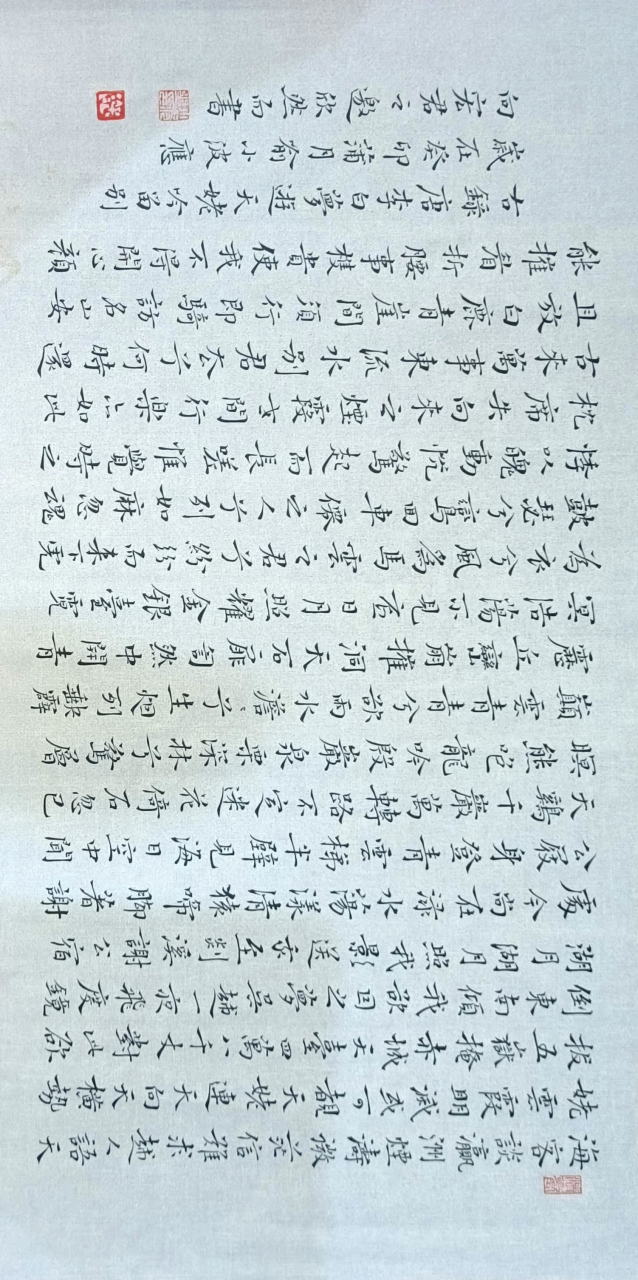 海客談瀛洲煙濤微茫信難求越人語天
姥雲霞明滅或可覩天姥連天向天橫勢
拔五嶽掩赤城天臺四萬八千丈對此欲
倒東南傾我欲因之夢吳越一夜飛度鏡
湖月湖月照我影送我至剡溪謝公宿
處今尚在淥水蕩漾清猿啼腳著謝
公屐身登青雲梯半壁見海日空中聞
天鷄千巖萬轉路不定迷花倚石忽已
暝熊咆龍吟殷巖泉栗深林兮驚層
巔雲青青兮欲雨水澹々兮生烟列缺霹
靂丘巒崩摧洞天石扉訇然中開青
冥浩蕩不見底日月照耀金銀臺霓
為衣兮風為馬雲之君兮紛紛而來下虎
鼓瑟兮鸞回車僊之人兮列如麻忽魂
悸以魄動怳驚起而長嗟惟覺時之
枕席失向來之煙霞世間行樂亦如此
古來萬事東流水別君去兮何時還
且放白鹿青崖間須行即騎訪名山安
能摧眉折腰事權貴使我不得開心顏
右錄唐李白夢遊天姥吟留別
歲在癸卯蒲月俞小波應
向宏君之邀欣然而書